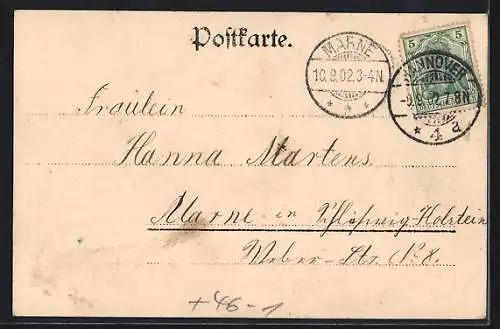 Postkarte.
MARNE
10.9.02.3-4N.
5 5
HANNOVER
8N
* 4 a
Fräulein
Hanna Martens
Marne in Schleswig-Holstein
Weber-Str. No 8.
+46-1